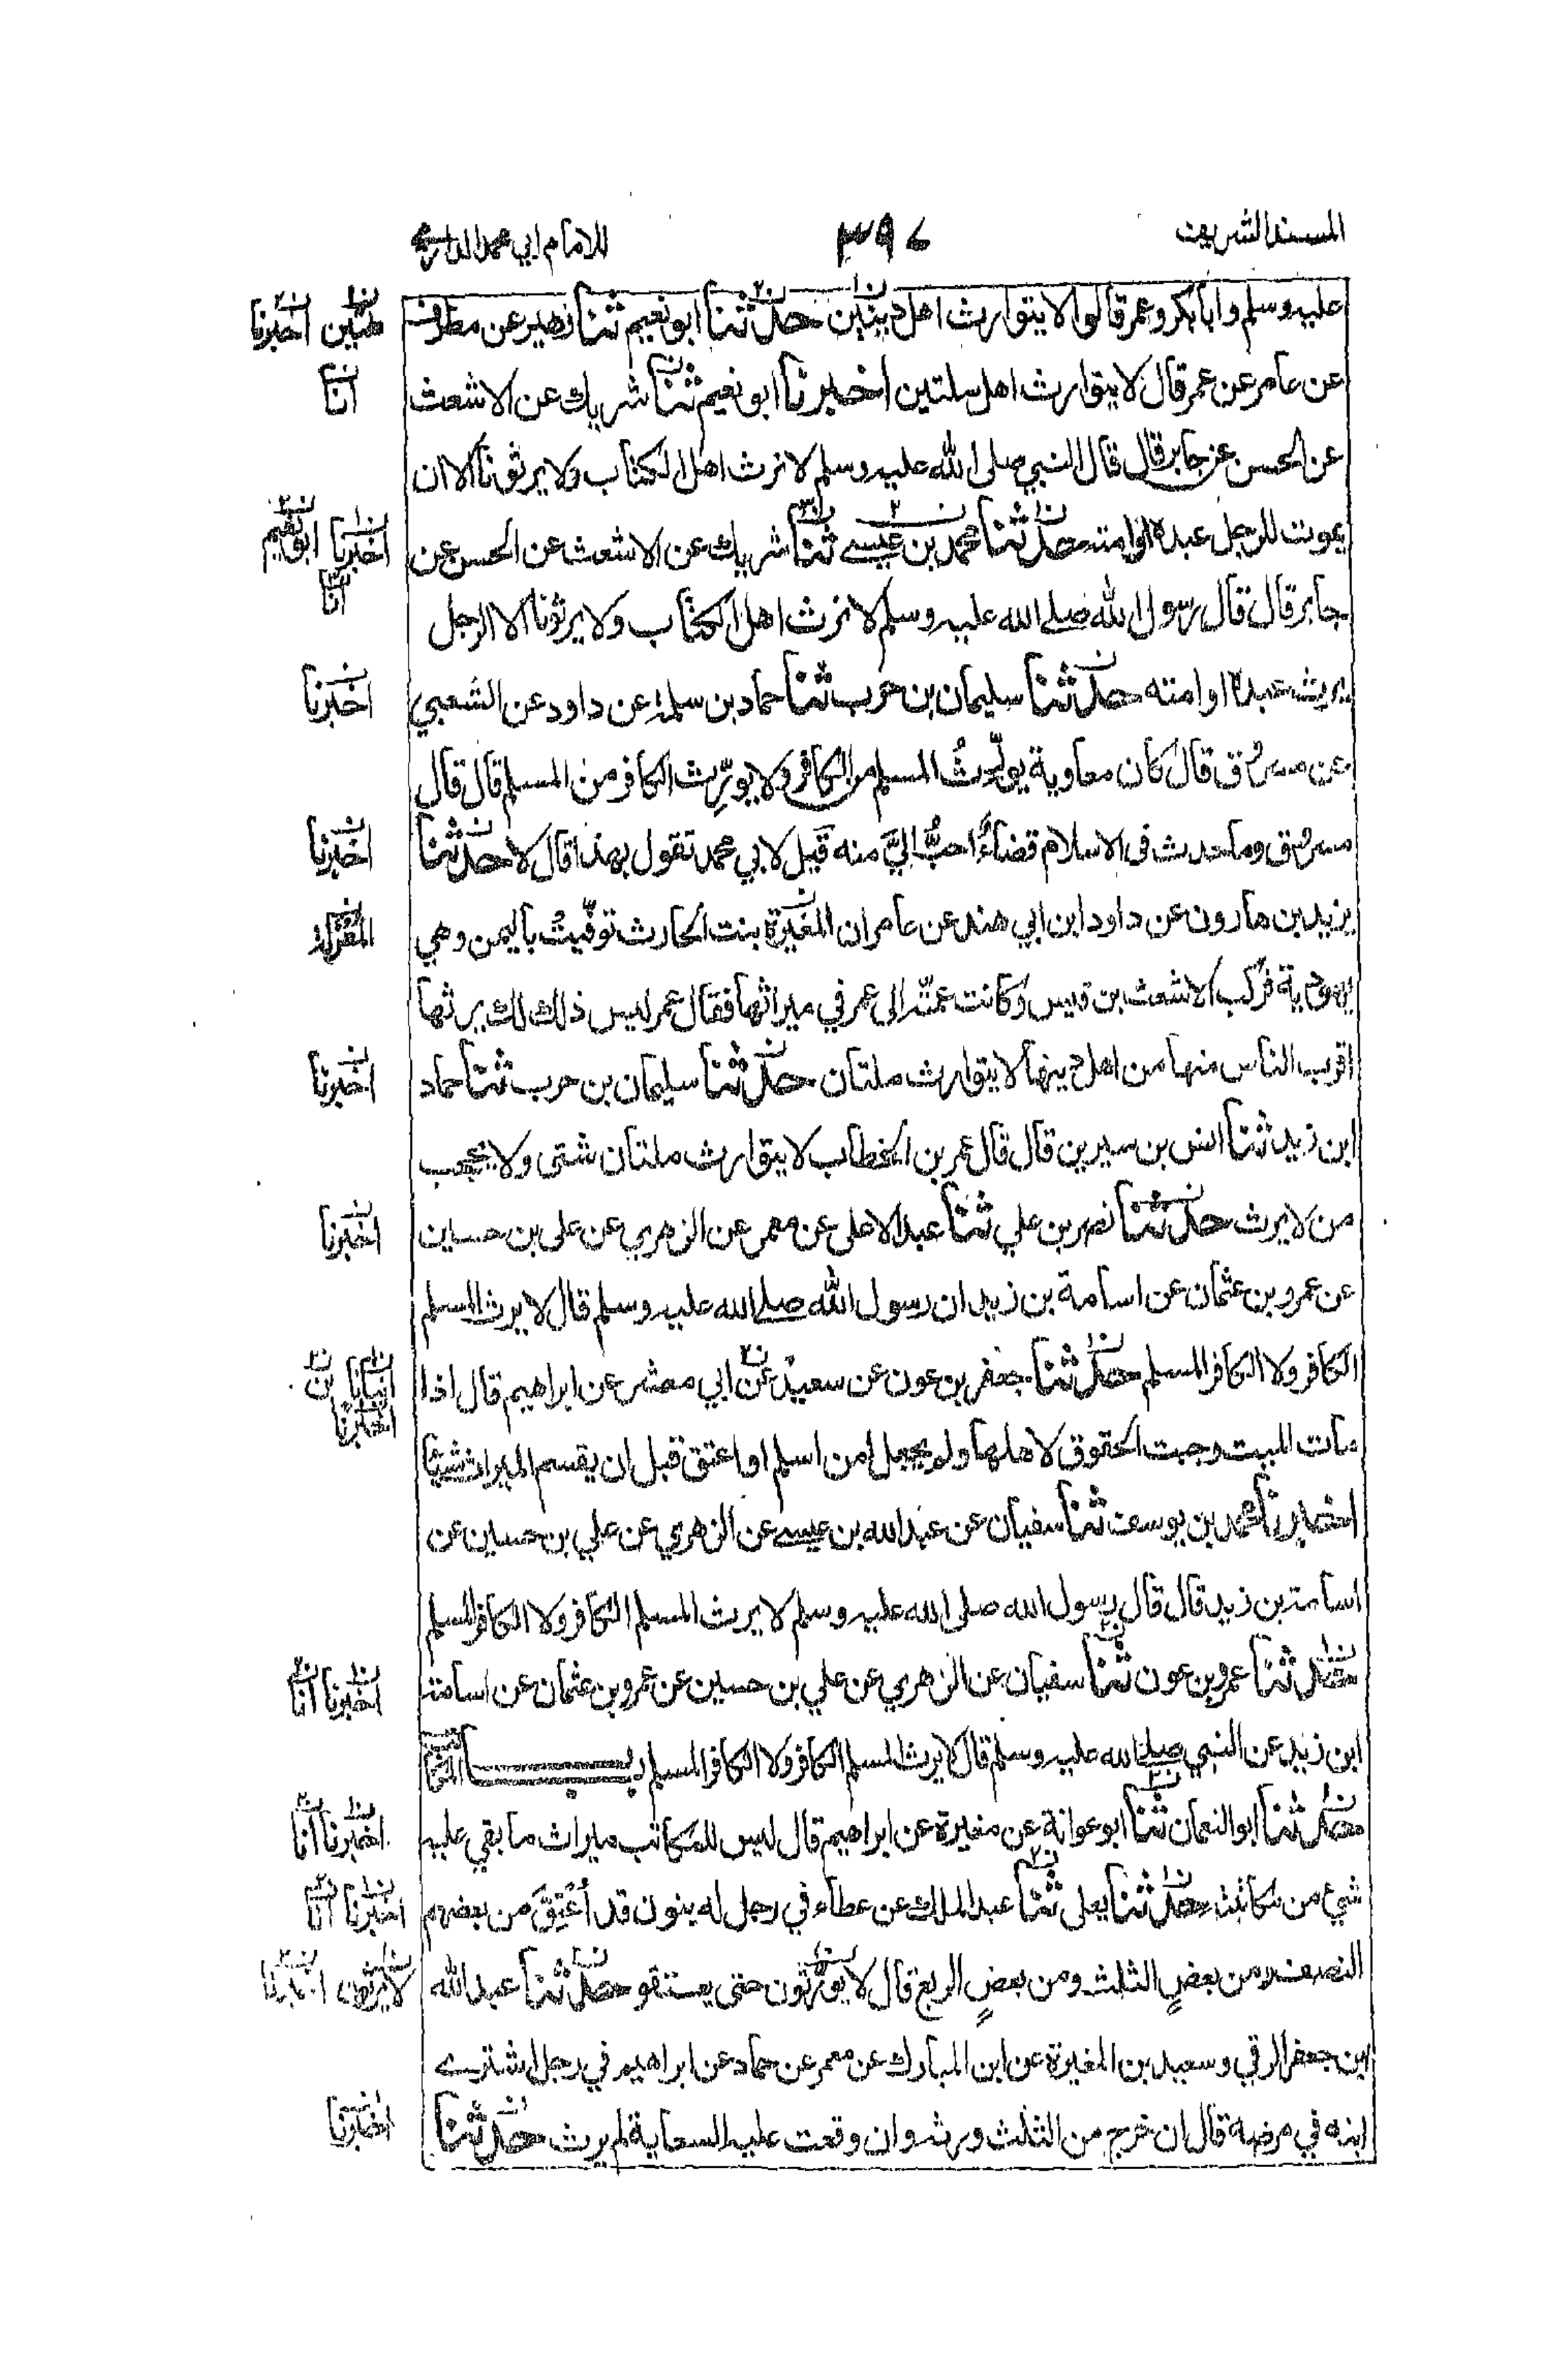 المسند الشريف ٣٩٧ للامام ابي محمد الدارمي
عليه وسلم وابا بكر وعمر قالوا لا يتوارث اهل دينين حدثنا ابو نعيم ثنا زهير عن مطرف
عن عامر عن عمر قال لا يتوارث اهل ملتين اخبرنا ابو نعيم ثنا شريك عن الاشعث
عن الحسن عن جابر قال قال النبي صلى الله عليه وسلم لا نرث اهل الكتاب ولا يرثونا الا ان
يموت للرجل عبده او امته حدثنا محمد بن عيسے ثنا شريك عن الاشعث عن الحسن عن
جابر قال قال رسول الله صلے الله عليه وسلم لا نرث اهل الكتاب ولا يرثونا الا الرجل
يرث عبده او امته حدثنا سليمان بن حرب ثنا حماد بن سلمة عن داود عن الشعبي
عن مسروق قال كان معاوية يورّثُ المسلم من الكافر ولا يورّث الكافر من المسلم قال قال
مسروق وما حدث فى الاسلام قضاءٌ احبُّ اليَّ منه قيل لابي محمد تقول بهذا قال لا حدثنا
يزيد بن هارون عن داود ابن ابي هند عن عامر ان المغيرة بنت الحارث توفّيت باليمن وهي
يهودية فركب الاشعث بن قيس وكانت عمته الى عمر في ميراثها فقال عمر ليس ذلك لك يرثها
اقرب الناس منها من اهل دينها لا يتوارث ملتان حدثنا سليمان بن حرب ثنا حماد
ابن زيد ثنا انس بن سيرين قال قال عمر بن الخطاب لا يتوارث ملتان شتى ولا يحجب
من لا يرث حدثنا نصر بن علي ثنا عبد الاعلى عن معمر عن الزهري عن على بن حسين
عن عمرو بن عثمان عن اسامة بن زيد ان رسول الله صلے الله عليه وسلم قال لا يرث المسلم
الكافر ولا الكافر المسلم حدثنا جعفر بن عون عن سعيد عن ابي معشر عن ابراهيم قال اذا
مات الميت وجبت الحقوق لاهلها ولم يجعل لمن اسلم او اعتق قبل ان يقسم الميراث شيئا
اخبرنا محمد بن يوسف ثنا سفيان عن عبد الله بن عيسے عن الزهري عن علي بن حسين عن
اسامة بن زيد قال قال رسول الله صلى الله عليه وسلم لا يرث المسلم الكافر ولا الكافر المسلم
حدثنا عمرو بن عون ثنا سفيان عن الزهري عن علي بن حسين عن عمرو بن عثمان عن اسامة
ابن زيد عن النبي صلے الله عليه وسلم قال لا يرث المسلم الكافر ولا الكافر المسلم باب
حدثنا ابو النعمان ثنا ابو عوانة عن مغيرة عن ابراهيم قال ليس للمكاتب ميراث ما بقي عليه
شيء من مكاتبته حدثنا يعلى ثنا عبد الملك عن عطاء في رجل له بنون قد أُعْتِقَ من بعضهم
النصف ومن بعضٍ الثلث ومن بعضٍ الربع قال لا يورّثون حتى يعتقو حدثنا عبد الله
ابن جعفر الرقي وسعيد بن المغيرة عن ابن المبارك عن معمر عن حماد عن ابراهيم في رجل اشترے
ابنه في مرضه قال ان خرج من الثلث ورثه وان وقعت عليه السعاية لم يرث حدثنا
اخبرنا
انا
اخبرنا ابو نعيم
انا
اخبرنا
اخبرنا
اخبرنا
اخبرنا
انبانا
اخبرنا
اخبرنا انا
اخبرنا انا
اخبرنا انا
لا يرثون اخبرنا
اخبرنا